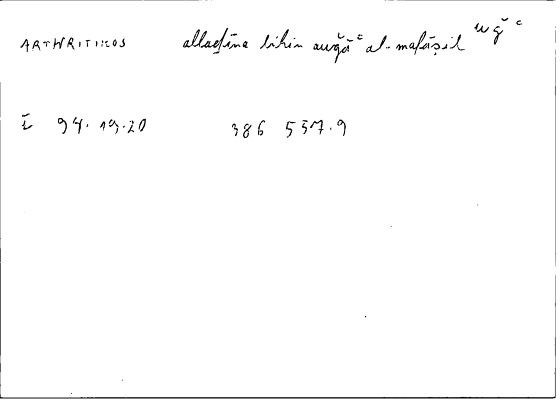 ARTHRITIKOS allaḏīna bihim auǧāʿ al-mafāṣil wǧʿ
I 94.19.20 386 557.9